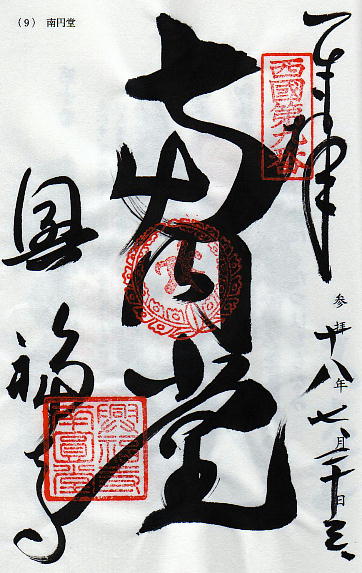 (9) 南円堂
奉拝
西國第九番
参拝 十八年 七月二十日
南円堂
興福寺
興福寺
南圓堂